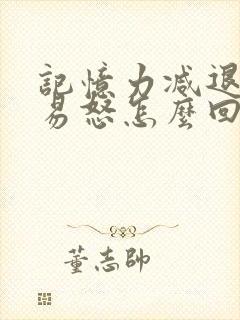 記憶力减退
易怒怎麼回
董志帥